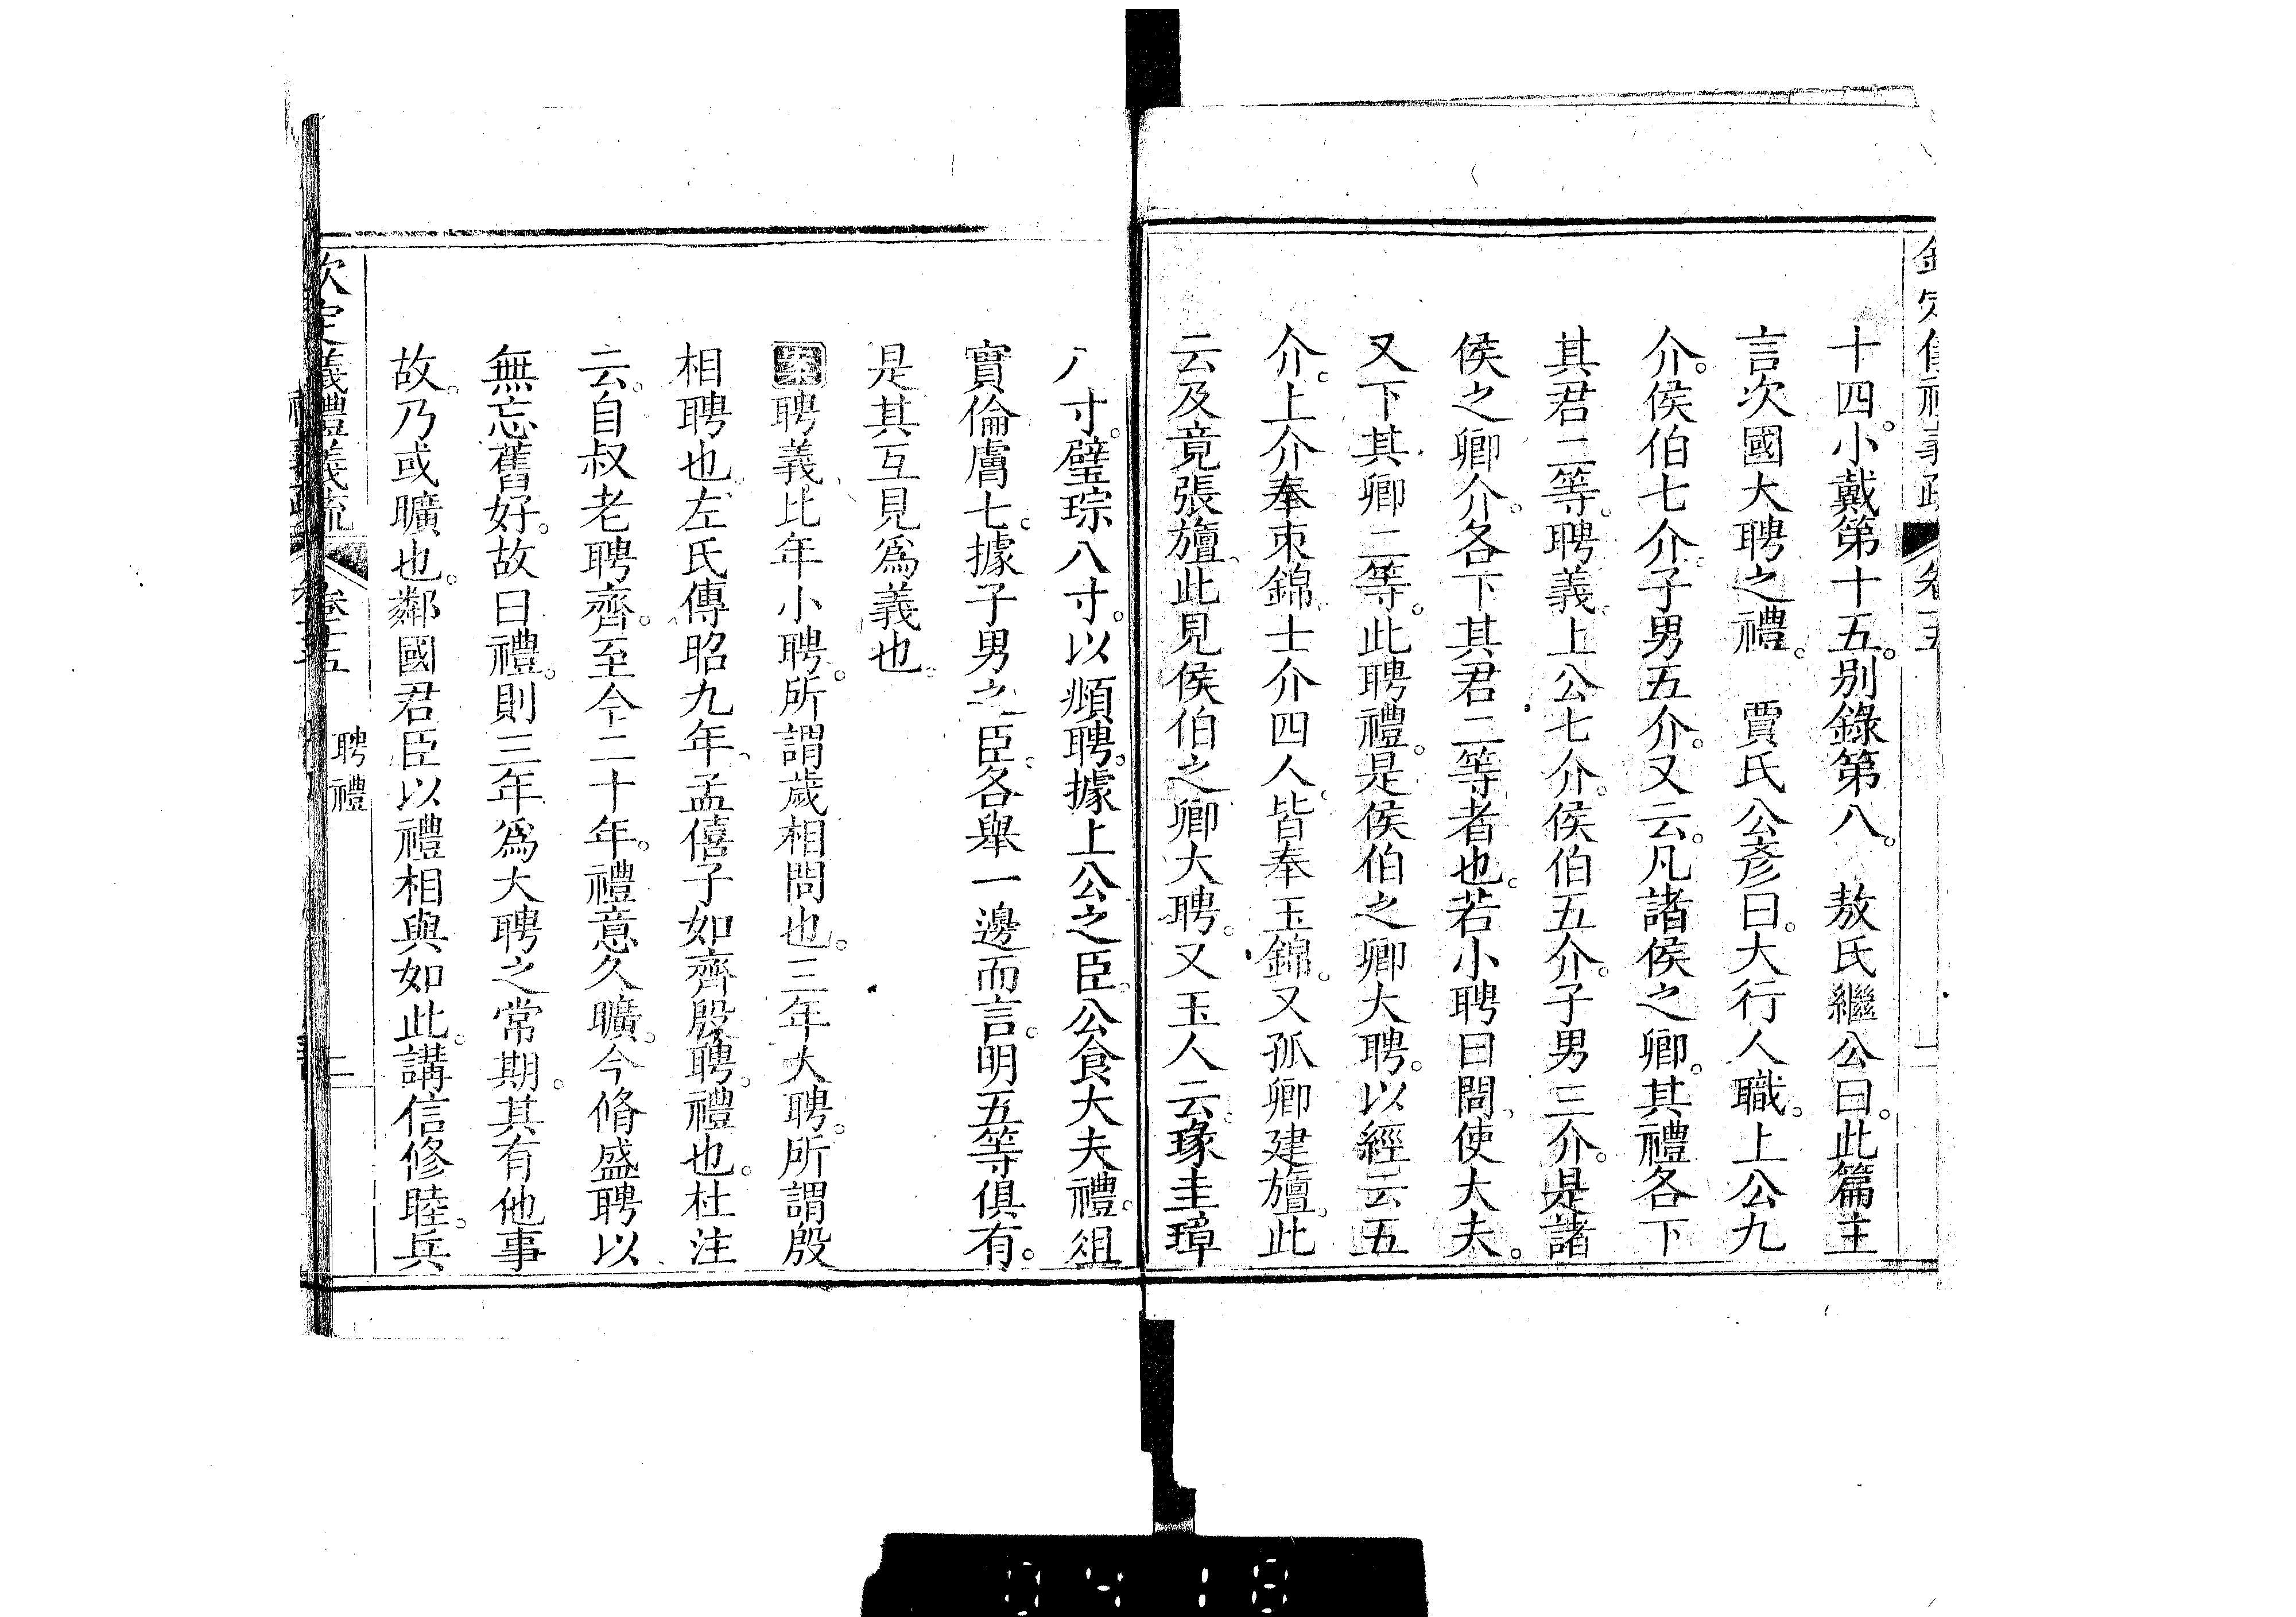 十四。小戴第十五。別錄第八。　敖氏繼公曰。此篇主
言次國大聘之禮。　賈氏公彥曰。大行人職。上公九
介。侯伯七介。子男五介。又云。凡諸侯之卿。其禮各下
其君二等。聘義。上公七介。侯伯五介。子男三介。是諸
侯之卿介。各下其君二等者也。若小聘曰問、使大夫。
又下其卿二等。此聘禮。是侯伯之卿大聘。以經云五
介。上介奉束錦、士介四人、皆奉玉錦。又孤卿建旜。此
云及竟張旜、此見侯伯之卿大聘。又玉人云、瑑圭璋
八寸。璧琮八寸。以頫聘。據上公之臣。公食大夫禮。俎
實倫膚七。據子男之臣、各舉一邊而言。明五等俱有。
是其互見爲義也。
案聘義、比年小聘。所謂歲相問也。三年大聘。所謂殷
相聘也。左氏傳昭九年、孟僖子如齊殷聘。禮也。杜注
云。自叔老聘齊。至今二十年。禮意久曠。今脩盛聘以
無忘舊好。故曰禮。則三年爲大聘之常期。其有他事
故。乃或曠也。鄰國君臣以禮相與如此。講信修睦。兵
欽定義禮義疏　卷十五　聘禮　二